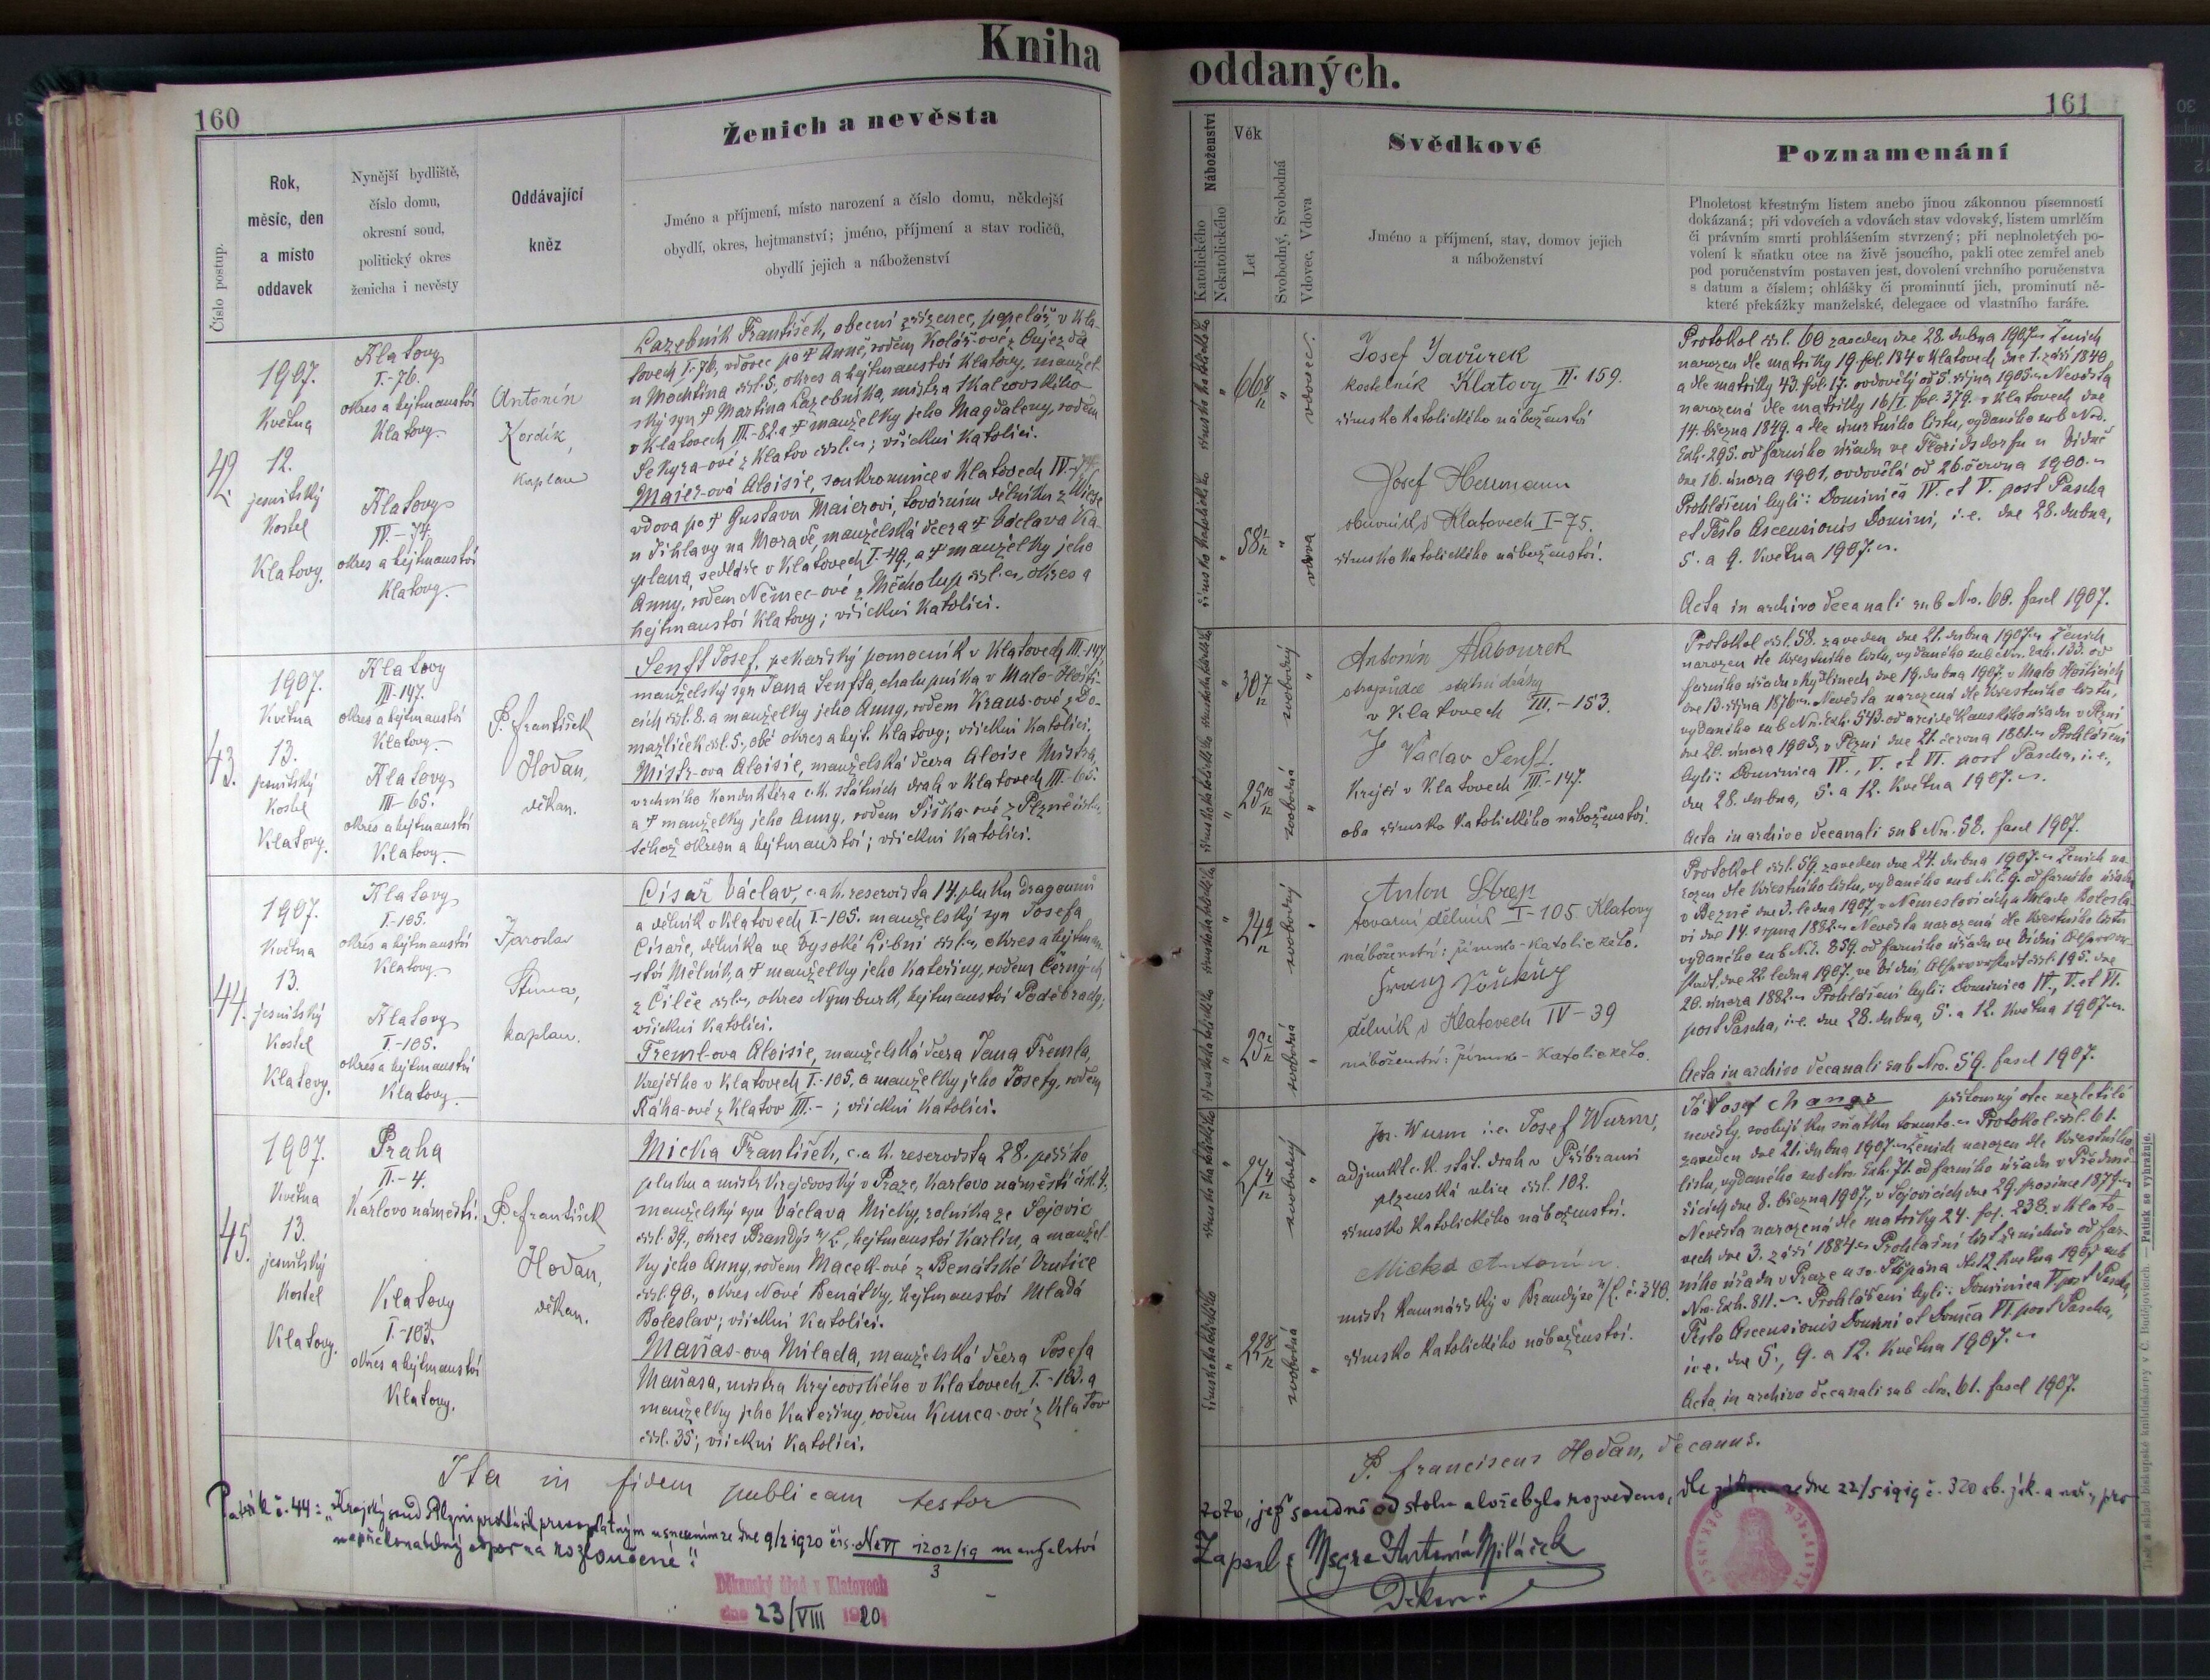 Kniha
160
Číslo postup.
Rok,
měsíc, den
a místo
oddavek
Nynější bydliště,
číslo domu,
okresní soud,
politický okres
ženicha i nevěsty
Oddávající
kněz
Ženich a nevěsta
Jméno a příjmení, místo narození a číslo domu, někdejší
obydlí, okres, hejtmanství; jméno, příjmení a stav rodičů,
obydlí jejich a náboženství
42.
1907.
Května
12.
jesuitský
Kostel
Klatovy.
Klatovy
I.-76.
okres a hejtmanství
Klatovy.
Klatovy
IV.-74.
okres a hejtmanství
Klatovy.
Antonín
Kordík,
Kaplan
Lazebník František, obecní zřízenec, popelář, v Kla-
tovech I.-76, vdovec po † Anně, rodem Kolář-ové z Újezda
u Mochtína čísl. 5, okres a hejtmanství Klatovy, manžel-
ský syn † Martina Lazebníka, mistra tkalcovského
v Klatovech III-82. a † manželky jeho Magdaleny, rodem
Sekyra-ové z Klatov čísl. ; všickni katolíci.
Maier-ová Aloisie, soukromnice v Klatovech IV.-74,
vdova po † Gustavu Maierovi, továrním dělníku z
u Jihlavy na Moravě, manželská dcera † Václava Ka-
plana, sedláře v Klatovech I.-49, a † manželky jeho
Anny, rodem Němec-ové z Měcholup čísl. , okres a
hejtmanství Klatovy; všickni katolíci.
43.
1907.
Května
13.
jesuitský
Kostel
Klatovy.
Klatovy
III-147.
okres a hejtmanství
Klatovy.
Klatovy
III-65.
okres a hejtmanství
Klatovy.
P. František
Hoďan,
děkan.
Senft Josef, pekařský pomocník v Klatovech III.-147,
manželský syn Jana Senfta, chalupníka v Malo-Hošti-
cích čísl. 8. a manželky jeho Anny, rodem Kraus-ové z Do-
mažliček čísl. 5., obé okres a hejt. Klatovy; všickni katolíci.
Mistr-ova Aloisie, manželská dcera Aloise Mistra,
vrchního konduktéra c.k. státních drah v Klatovech III.-65.
a † manželky jeho Anny, rodem Šiška-ové z Plzně čísl.
téhož okresu a hejtmanství; všickni katolíci.
44.
1907.
Května
13.
jesuitský
Kostel
Klatovy.
Klatovy
I.-105.
okres a hejtmanství
Klatovy.
Klatovy
I.-105.
okres a hejtmanství
Klatovy.
Jaroslav
kaplan.
Císař Václav, c. a k. reservista 14. pluku dragounů
a dělník v Klatovech I.-105. manželský syn Josefa
Císaře, dělníka ve Vysoké Libni čísl. , okres a hejtman-
ství Mělník, a † manželky jeho Kateřiny, rodem Černých
z Čilče čísl. , okres Nymburk, hejtmanství Poděbrady;
všickni katolíci.
Treml-ova Aloisie, manželská dcera Jana Tremla,
krejčího v Klatovech I.-105, a manželky jeho Josefy, rodem
Ráha-ové z Klatov III.- ; všickni katolíci.
45.
1907.
Května
13.
jesuitský
Kostel
Klatovy.
Praha
II.-4.
Karlovo náměstí.
Klatovy
I.-103.
okres a hejtmanství
Klatovy.
P. František
Hoďan,
děkan.
Micka František, c. a k. reservista 28. pěšího
pluku a mistr krejčovský v Praze, Karlovo náměstí čísl. 4,
manželský syn Václava Micky, rolníka ze Sojovic
čísl. 39., okres Brandýs n/L, hejtmanství Karlín, a manžel-
ky jeho Anny, rodem Macek-ové z Benátské Vrutice
čísl. 90., okres Nové Benátky, hejtmanství Mladá
Boleslav; všickni katolíci.
Maňas-ova Milada, manželská dcera Josefa
Maňasa, mistra krejčovského v Klatovech I.-103. a
manželky jeho Kateřiny, rodem Kunca-ové z Klatov
čísl. 35; všickni katolíci.
Ita in fidem publicam testor
Patřík č. 44: „Krajský soud Plzni prohlásil pravoplatným usnesením ze dne 9/2 1920 čís. Nc VI 1202/19 manželství
3
nepřekonatelný odpor za rozloučené"
Děkanský úřad v Klatovech
dne 23/VIII 1920
oddaných.
161
Náboženství
Katolického
Nekatolického
Věk
Let
Svobodný, Svobodná
Vdovec, Vdova
Svědkové
Jméno a příjmení, stav, domov jejich
a náboženství
Poznamenání
Plnoletost křestným listem anebo jinou zákonnou písemností
dokázaná; při vdovcích a vdovách stav vdovský, listem úmrlčím
či právním smrti prohlášením stvrzený; při neplnoletých po-
volení k sňatku otce na živě jsoucího, pakli otec zemřel aneb
pod poručenstvím postaven jest, dovolení vrchního poručenstva
s datum a číslem; ohlášky či prominutí jich, prominutí ně-
které překážky manželské, delegace od vlastního faráře.
římsko katolického
66 8/12
vdovec.
římsko katolického
58 2/12
vdova
Josef Javůrek
kostelník Klatovy II. 159.
římsko katolického náboženství
Josef Hermann
obuvník v Klatovech I-75.
římsko katolického náboženství.
Protokol čísl. 60 zaveden dne 28. dubna 1907. Ženich
narozen dle matriky 19. fol. 184 v Klatovech dne 1. září 1840,
a dle matriky 43. fol. 17. ovdovělý od 5. října 1905. Nevěsta
narozená dle matriky 16/I fol. 379. v Klatovech dne
14. března 1849. a dle úmrtního listu, vydaného sub Nro.
Exh. 295. od farního úřadu ve Floridsdorfu u Vídně
dne 16. února 1901, ovdovělá od 26. června 1900.
Prohlášeni byli: Dominica IV. et V. post Pascha
et Festo Ascensionis Domini, i.e. dne 28. dubna,
5. a 9. května 1907.
Acta in archivo decanali sub No. 60. fasc 1907.
římsko katolického
30 7/12
svobodný
římsko katolického
25 10/12
svobodná
Antonín
strojvůdce státní dráhy
v Klatovech III.-153.
Václav Senft.
Krejčí v Klatovech III-147.
oba římsko katolického náboženství.
Protokol čísl. 58. zaveden dne 21. dubna 1907. Ženich
narozen dle křestního listu, vydaného sub Nro. Exh. 133. od
farního úřadu v Kydlinech dne 19. dubna 1907. v Malo Hošticích
dne 13. října 1876. Nevěsta narozená dle křestního listu,
vydaného sub Nro. Exh. 543. od arciděkanského úřadu v Plzni
dne 20. února 1905, v Plzni dne 21. června 1881. Prohlášeni
byli: Dominica IV., V. et VI. post Pascha, i.e.,
dne 28. dubna, 5. a 12. května 1907.
Acta in archivo decanali sub No. 58. fasc 1907.
římsko katolického
24 9/12
svobodný
římsko katolického
25 2/12
svobodná
Anton
tovární dělník I-105 Klatovy
náboženství: římsko-katolického.
Franz
dělník v Klatovech IV-39
náboženství: římsko-katolického.
Protokol čísl. 59. zaveden dne 24. dubna 1907. Ženich na-
rozen dle křestního listu, vydaného sub N.E. 9. od farního úřadu
v Bezně dne 3. ledna 1907, v Němeslovicích u Mladé Bolesla-
vi dne 14. srpna 1882. Nevěsta narozená dle křestního listu
vydaného sub N.E. 839. od farního úřadu ve Vídni
dne 22. ledna 1907, ve Vídni, čísl. 195. dne
20. února 1882. Prohlášeni byli: Dominica IV., V. et VI.
post Pascha, i.e. dne 28. dubna, 5. a 12. května 1907.
Acta in archivo decanali sub Nro. 59. fasc 1907.
římsko katolického
27 4/12
svobodný
římsko katolického
22 8/12
svobodná
Jos. Wurm i.e. Josef Wurm,
adjunkt c.k. stát. drah v Příbrami
plzenská ulice čísl. 102.
římsko katolického náboženství.
Micka Antonín.
mistr kamnářský v Brandýse n/L. č. 340.
římsko katolického náboženství.
Já Josef Maňas přítomný otec nezletilé
nevěsty, svoluji ku sňatku tomuto. Protokol čísl. 61.
zaveden dne 21. dubna 1907. Ženich narozen dle křestního
listu, vydaného sub Nro. Exh. 71. od farního úřadu v Předmě-
řicích dne 8. března 1907, v Sojovicích dne 29. prosince 1877.
Nevěsta narozená dle matriky 24. fol. 238. v Klato-
vech dne 3. září 1884. Prohlašní list ženichův od far-
ního úřadu v Praze u sv. Štěpána dto 12. května 1907 sub
Nro. Exh. 811. Prohlášeni byli: Dominica V. post Pascha,
Festo Ascensionis Domini et Domca VI. post Pascha,
i.e. dne 5., 9. a 12. května 1907.
Acta in archivo decanali sub Nro. 61. fasc 1907.
P. Franciscus Hoďan, decanus.
toto, jež soudně od stolu a lože bylo rozvedeno, dle zákona ze dne 22/5 1919 č. 320 sb. zák. a nař., pro
Zapsal: Msgre Antonín Miláček
Děkan
Tisk a sklad biskupské knihtiskárny v Č. Budějovicích. — Patisk se vyhražuje.